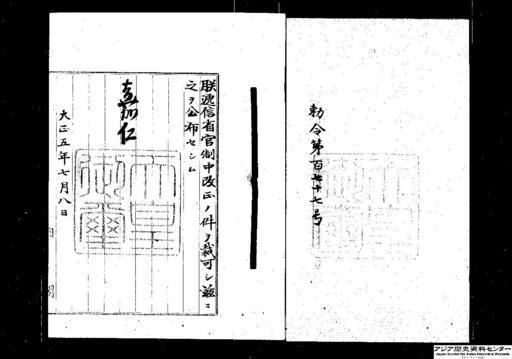 勅令第百七十七号
朕逓信省官制中改正ノ件ヲ裁可シ茲ニ
之ヲ公布セシム
嘉仁
天皇御璽
大正五年七月八日
アジア歴史資料センター
Japan Center for Asian Historical Records